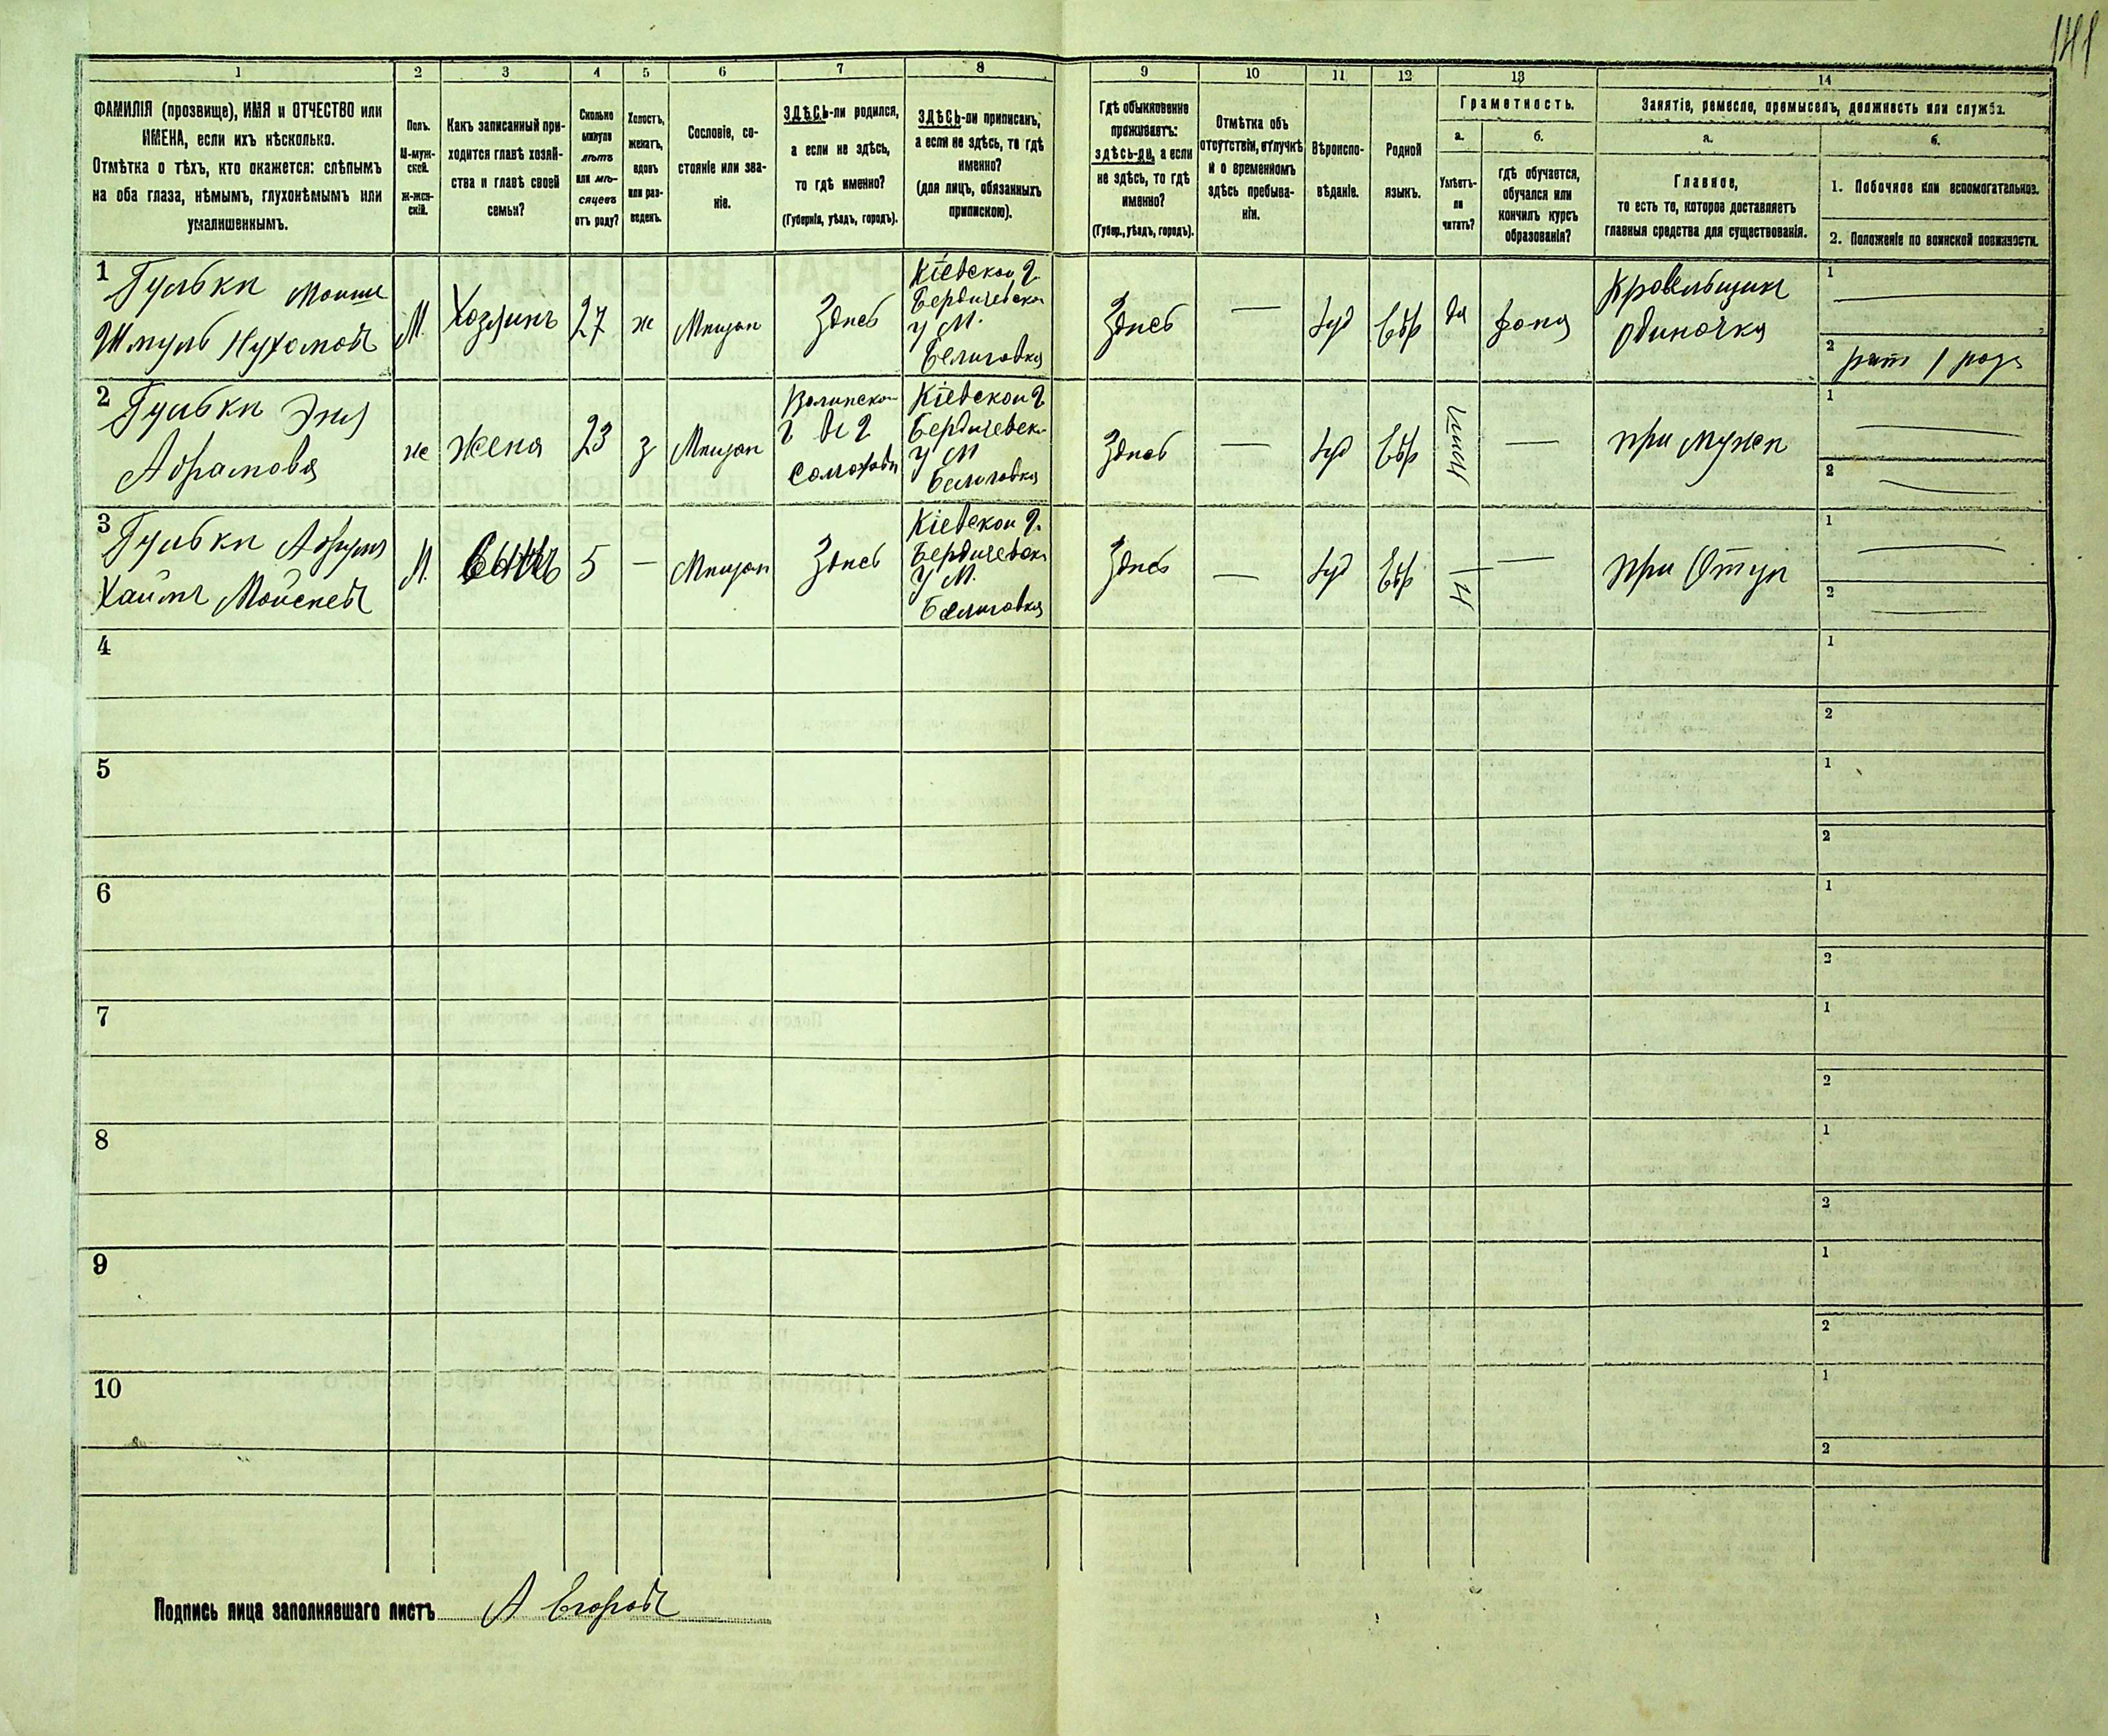 141
1 2 3 4 5 6 7 8 9 10 11 12 13 14
ФАМИЛІЯ (прозвище), ИМЯ и ОТЧЕСТВО или
ИМЕНА, если ихъ нѣсколько.
Отмѣтка о тѣхъ, кто окажется: слѣпымъ
на оба глаза, нѣмымъ, глухонѣмымъ или
умалишеннымъ.
Полъ.
М-муж-
ской.
Ж-жен-
скій.
Какъ записанный при-
ходится главѣ хозяй-
ства и главѣ своей
семьи?
Сколько
минуло
лѣтъ
или мѣ-
сяцевъ
отъ роду?
Холостъ,
женатъ,
вдовъ
или раз-
веденъ.
Сословіе, со-
стояніе или зва-
ніе.
ЗДѢСЬ-ли родился,
а если не здѣсь,
то гдѣ именно?
(Губернія, уѣздъ, городъ).
ЗДѢСЬ-ли приписанъ,
а если не здѣсь, то гдѣ
именно?
(для лицъ, обязанныхъ
припискою).
Гдѣ обыкновенно
проживаетъ:
здѣсь-ли, а если
не здѣсь, то гдѣ
именно?
(Губер., уѣздъ, городъ).
Отмѣтка объ
отсутствіи, отлучкѣ
и о временномъ
здѣсь пребыва-
ніи.
Вѣроиспо-
вѣданіе.
Родной
языкъ.
Грамотность.
а.
б.
Умѣетъ-
ли
читать?
гдѣ обучается,
обучался или
кончилъ курсъ
образованія?
Занятіе, ремесло, промыселъ, должность или служба.
а.
б.
Главное,
то есть то, которое доставляетъ
главныя средства для существованія.
1. Побочное или вспомогательное.
2. Положеніе по воинской повинности.
1
Гульки Мошш
Шмуль Нухомовъ
М.
Хозяинъ
27
ж
Мѣщан
Здѣсь
Кіевской г
Бердичевско
у М.
Здѣсь
Іуд
Евр
да
дома
Кровельщикъ
Одиночка
1
2
рат 1 разр
2
Гульки Эня
Абрамова
ж
Жена
23
з
Мѣщан
Волинско
Кіевской г
Бердичевск
у М
Здѣсь
Іуд
Евр
при мужѣ
1
2
3
Гульки
Хаимъ Мойсеевъ
М.
Сынъ
5
—
Мѣщан
Здѣсь
Кіевской г.
Бердичевск
у М.
Здѣсь
—
Іуд
Евр
—
при Отцѣ
1
2
4
1
2
5
1
2
6
1
2
7
1
2
8
1
2
9
1
2
10
1
2
Подпись лица заполнявшаго листъ А Егоровъ